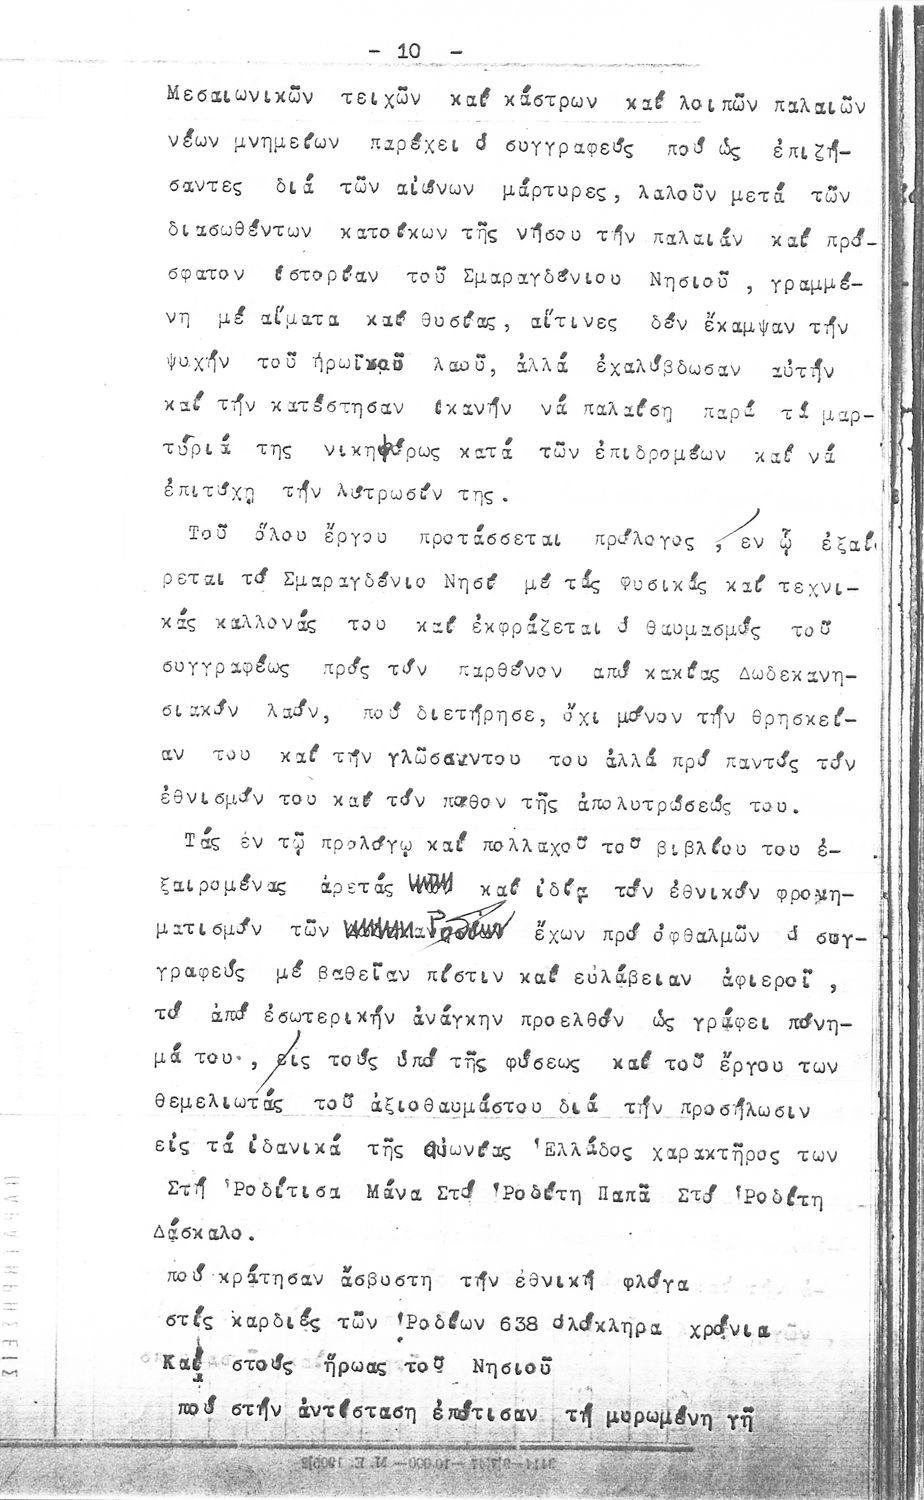 - 10 -
Μεσαιωνικῶν τειχῶν καί κάστρων καί λοιπῶν παλαιῶν
νέων μνημείων παρέχει ὁ συγγραφεύς πού ὡς ἐπιζή-
σαντες διά τῶν αἰώνων μάρτυρες, λαλοῦν μετά τῶν
διασωθέντων κατοίκων τῆς νήσου τήν παλαιάν καί πρό-
σφατον ἱστορίαν τοῦ Σμαραγδένιου Νησιοῦ , γραμμέ-
νη μέ αἵματα καί θυσίας, αἵτινες δέν ἔκαμψαν τήν
ψυχήν τοῦ ἡρωϊκοῦ λαοῦ, ἀλλά ἐχαλύβδωσαν αὐτήν
καί τήν κατέστησαν ἱκανήν νά παλαίση παρά τά μαρ-
τύριά της νικηφόρως κατά τῶν ἐπιδρομέων καί νά
ἐπιτύχη τήν λύτρωσίν της.
Τοῦ ὅλου ἔργου προτάσσεται πρόλογος , εν ᾧ ἐξαί
ρεται τό Σμαραγδένιο Νησί μέ τάς Φυσικάς καί τεχνι-
κάς καλλονάς του καί ἐκφράζεται ὁ θαυμασμός τοῦ
συγγραφέως πρός τόν παρθένον από κακίας Δωδεκανη-
σιακόν λαόν, πού διετήρησε, ὄχι μόνον τήν θρησκεί-
αν του καί τήν γλῶσσαντου του ἀλλά πρό παντός τόν
ἐθνισμόν του καί τόν πόθον τῆς ἀπολυτρώσεώς του.
Τάς ἐν τῷ προλόγῳ καί πολλαχοῦ τοῦ βιβλίου του ἐ-
ξαιρομένας ἀρετάς καί ἰδίᾳ τόν ἐθνικόν φρονη-
ματισμόν τῶν Ροδίων ἔχων πρό ὀφθαλμῶν ὁ συγ-
γραφεύς μέ βαθεῖαν πίστιν καί εὐλάβειαν ἀφιεροῖ ,
τό ἀπό ἐσωτερικήν ἀνάγκην προελθόν ὡς γράφει πόνη-
μά του , εἰς τούς ὑπό τῆς φύσεως καί τοῦ ἔργου των
θεμελιωτάς τοῦ ἀξιοθαυμάστου διά τήν προσήλωσιν
εἰς τά ἰδανικά τῆς αἰωνίας Ἑλλάδος χαρακτῆρος των
Στή Ῥοδίτισα Μάνα Στό Ῥοδίτη Παπᾶ Στό Ῥοδίτη
Δάσκαλο.
πού κράτησαν ἄσβυστη τήν ἐθνική φλόγα
στίς καρδιές τῶν Ῥοδίων 638 ὁλόκληρα χρόνια
Καί στούς ἥρωας τοῦ Νησιοῦ
πού στήν ἀντίσταση ἐπότισαν τή μυρωμένη γῆ